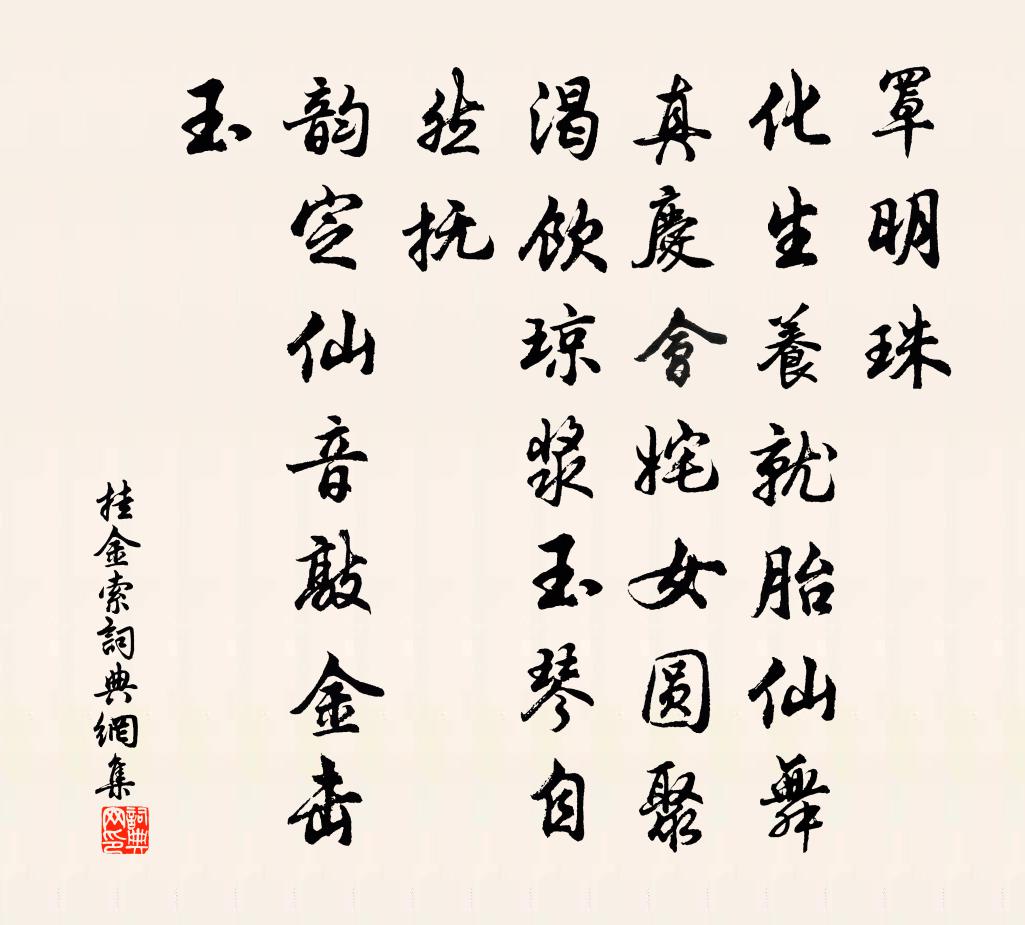 罩明珠
化生養就胎仙舞
真慶會姹女圆聚
渴飲琼漿玉琴自
然抚
韵定仙音敲金击
玉
挂金索詞典網集
詞典
网印